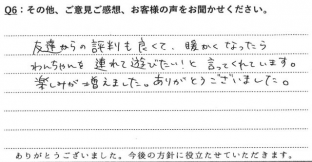 Q6：その他、ご意見ご感想、お客様の声をお聞かせください。
友達からの評判も良くて、暖かくなったら
わんちゃんを連れて遊びたい!と言ってくれています。
楽しみが増えました。ありがとうございました。
ありがとうございました。今後の方針に役立たせていただきます。